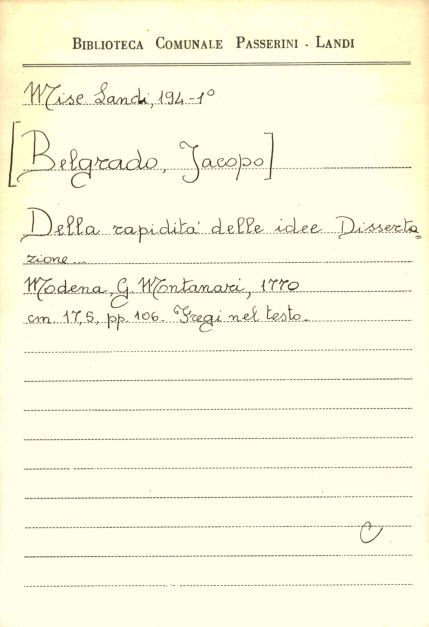 BIBLIOTECA COMUNALE PASSERINI - LANDI
Misc Landi, 194-1º
[Belgrado, Jacopo]
Della rapidità delle idee Disserta=
zione...
Modena, G. Montanari, 1770
cm. 17,5, pp. 106. Fregi nel testo.
C